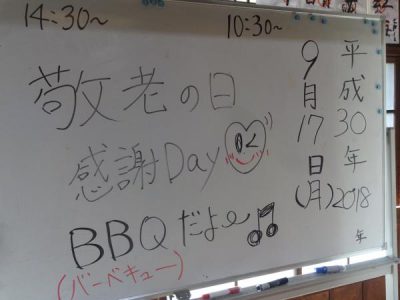 14:30~
10:30~
敬老の日
感謝Day
BBQだよ〜
(バーベキュー)
平成30年
2018年
9月17日(月)